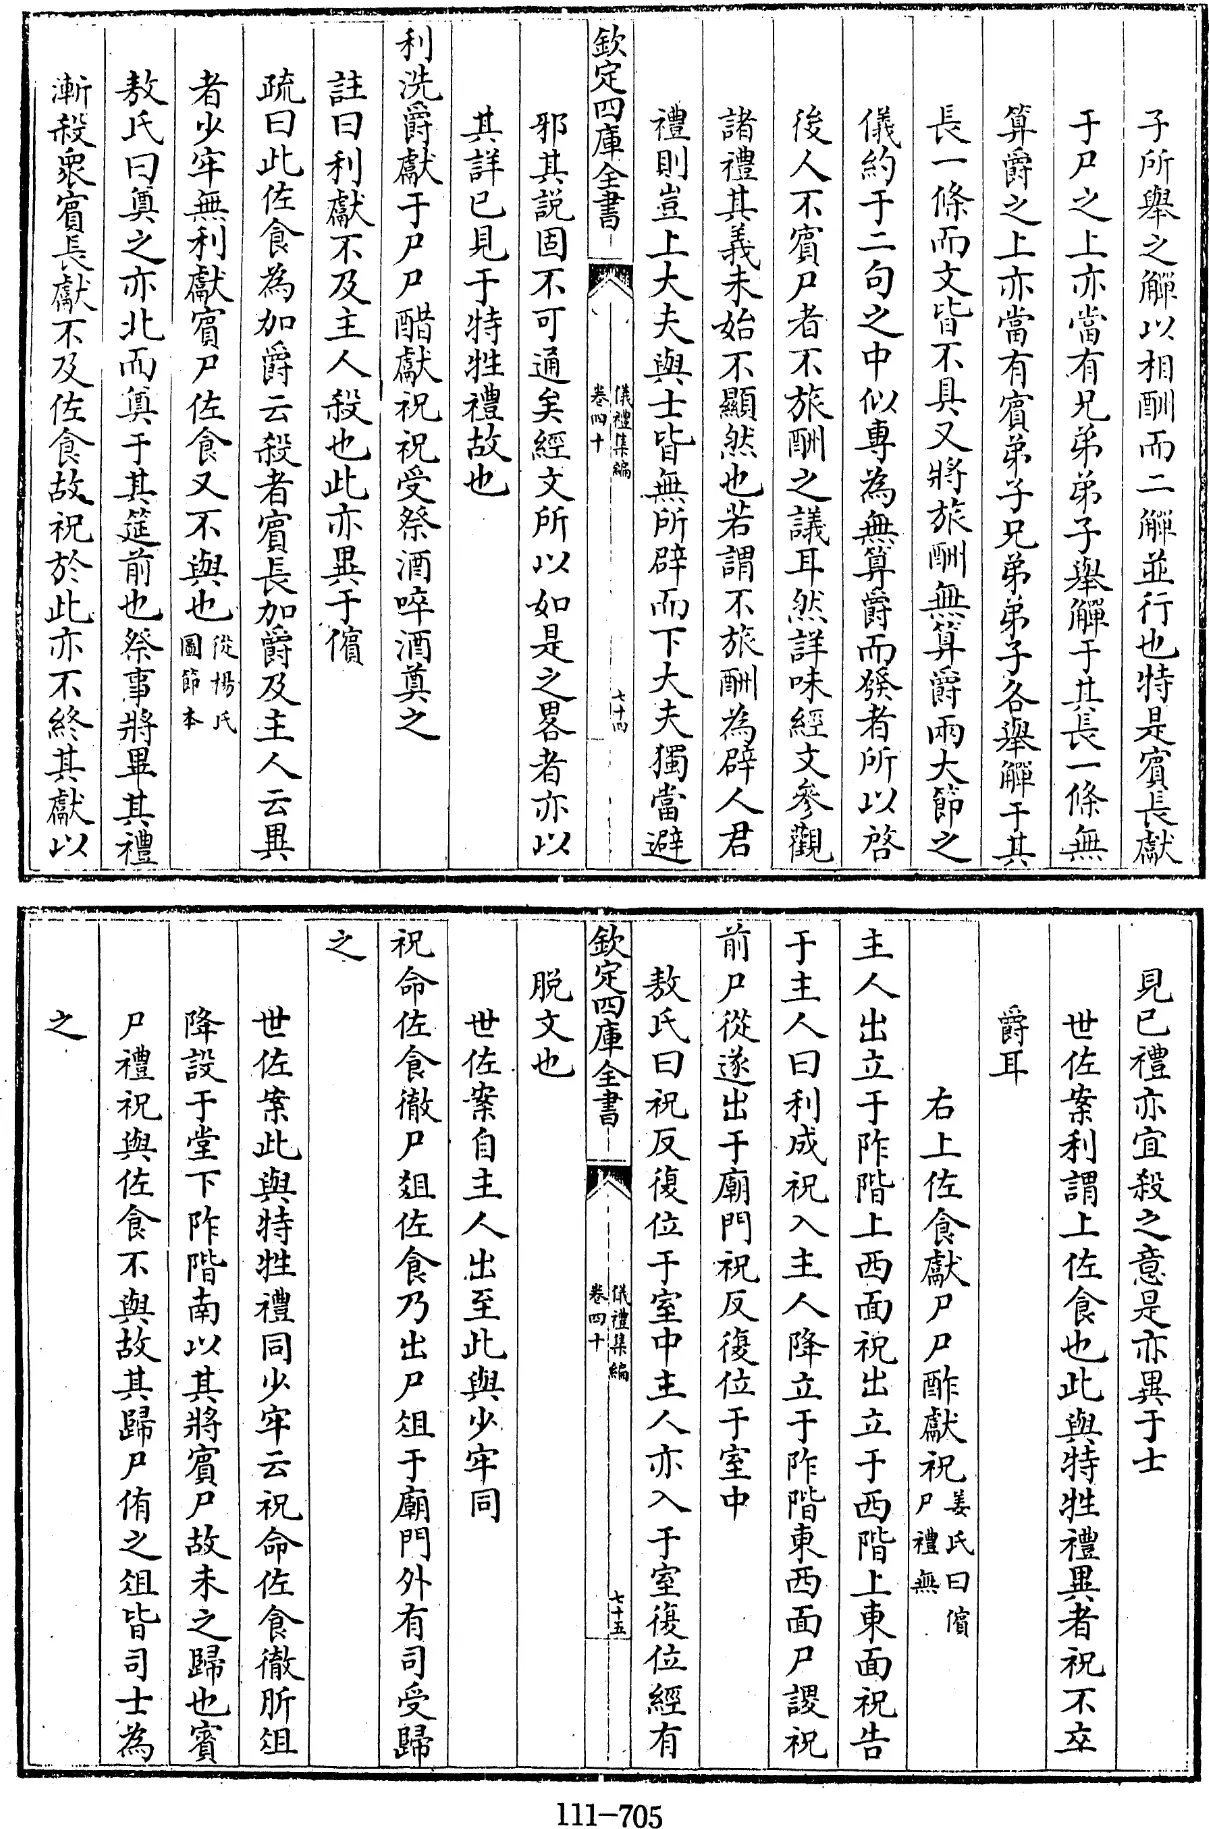 子所舉之觶以相酬而二觶並行也特是賓長獻
于尸之上亦當有兄弟弟子舉觶于其長一條無
算爵之上亦當有賓弟子兄弟弟子各舉觶于其
長一條而文皆不具又將旅酬無算爵兩大節之
儀約于二句之中似專為無算爵而發者所以啓
後人不賓尸者不旅酬之議耳然詳味經文參觀
諸禮其義未始不顯然也若謂不旅酬為辟人君
禮則豈上大夫與士皆無所辟而下大夫獨當避
欽定四庫全書
儀禮集編
卷四十
七十四
邪其説固不可通矣經文所以如是之畧者亦以
其詳已見于特牲禮故也
利洗爵獻于尸尸醋獻祝祝受祭酒啐酒奠之
註曰利獻不及主人殺也此亦異于儐
疏曰此佐食為加爵云殺者賓長加爵及主人云異
者少牢無利獻賓尸佐食又不與也從楊氏
圖節本
敖氏曰奠之亦北而奠于其筵前也祭事將畢其禮
漸殺衆賓長獻不及佐食故祝於此亦不終其獻以
見已禮亦宜殺之意是亦異于士
世佐案利謂上佐食也此與特牲禮異者祝不卒
爵耳
右上佐食獻尸尸酢獻祝姜氏曰儐
尸禮無
主人出立于阼階上西面祝出立于西階上東面祝告
于主人曰利成祝入主人降立于阼階東西面尸謖祝
前尸從遂出于廟門祝反復位于室中
敖氏曰祝反復位于室中主人亦入于室復位經有
欽定四庫全書
儀禮集編
卷四十
七十五
脱文也
世佐案自主人出至此與少牢同
祝命佐食徹尸俎佐食乃出尸俎于廟門外有司受歸
之
世佐案此與特牲禮同少牢云祝命佐食徹肵俎
降設于堂下阼階南以其將賓尸故未之歸也賓
尸禮祝與佐食不與故其歸尸侑之俎皆司士為
之
111-705